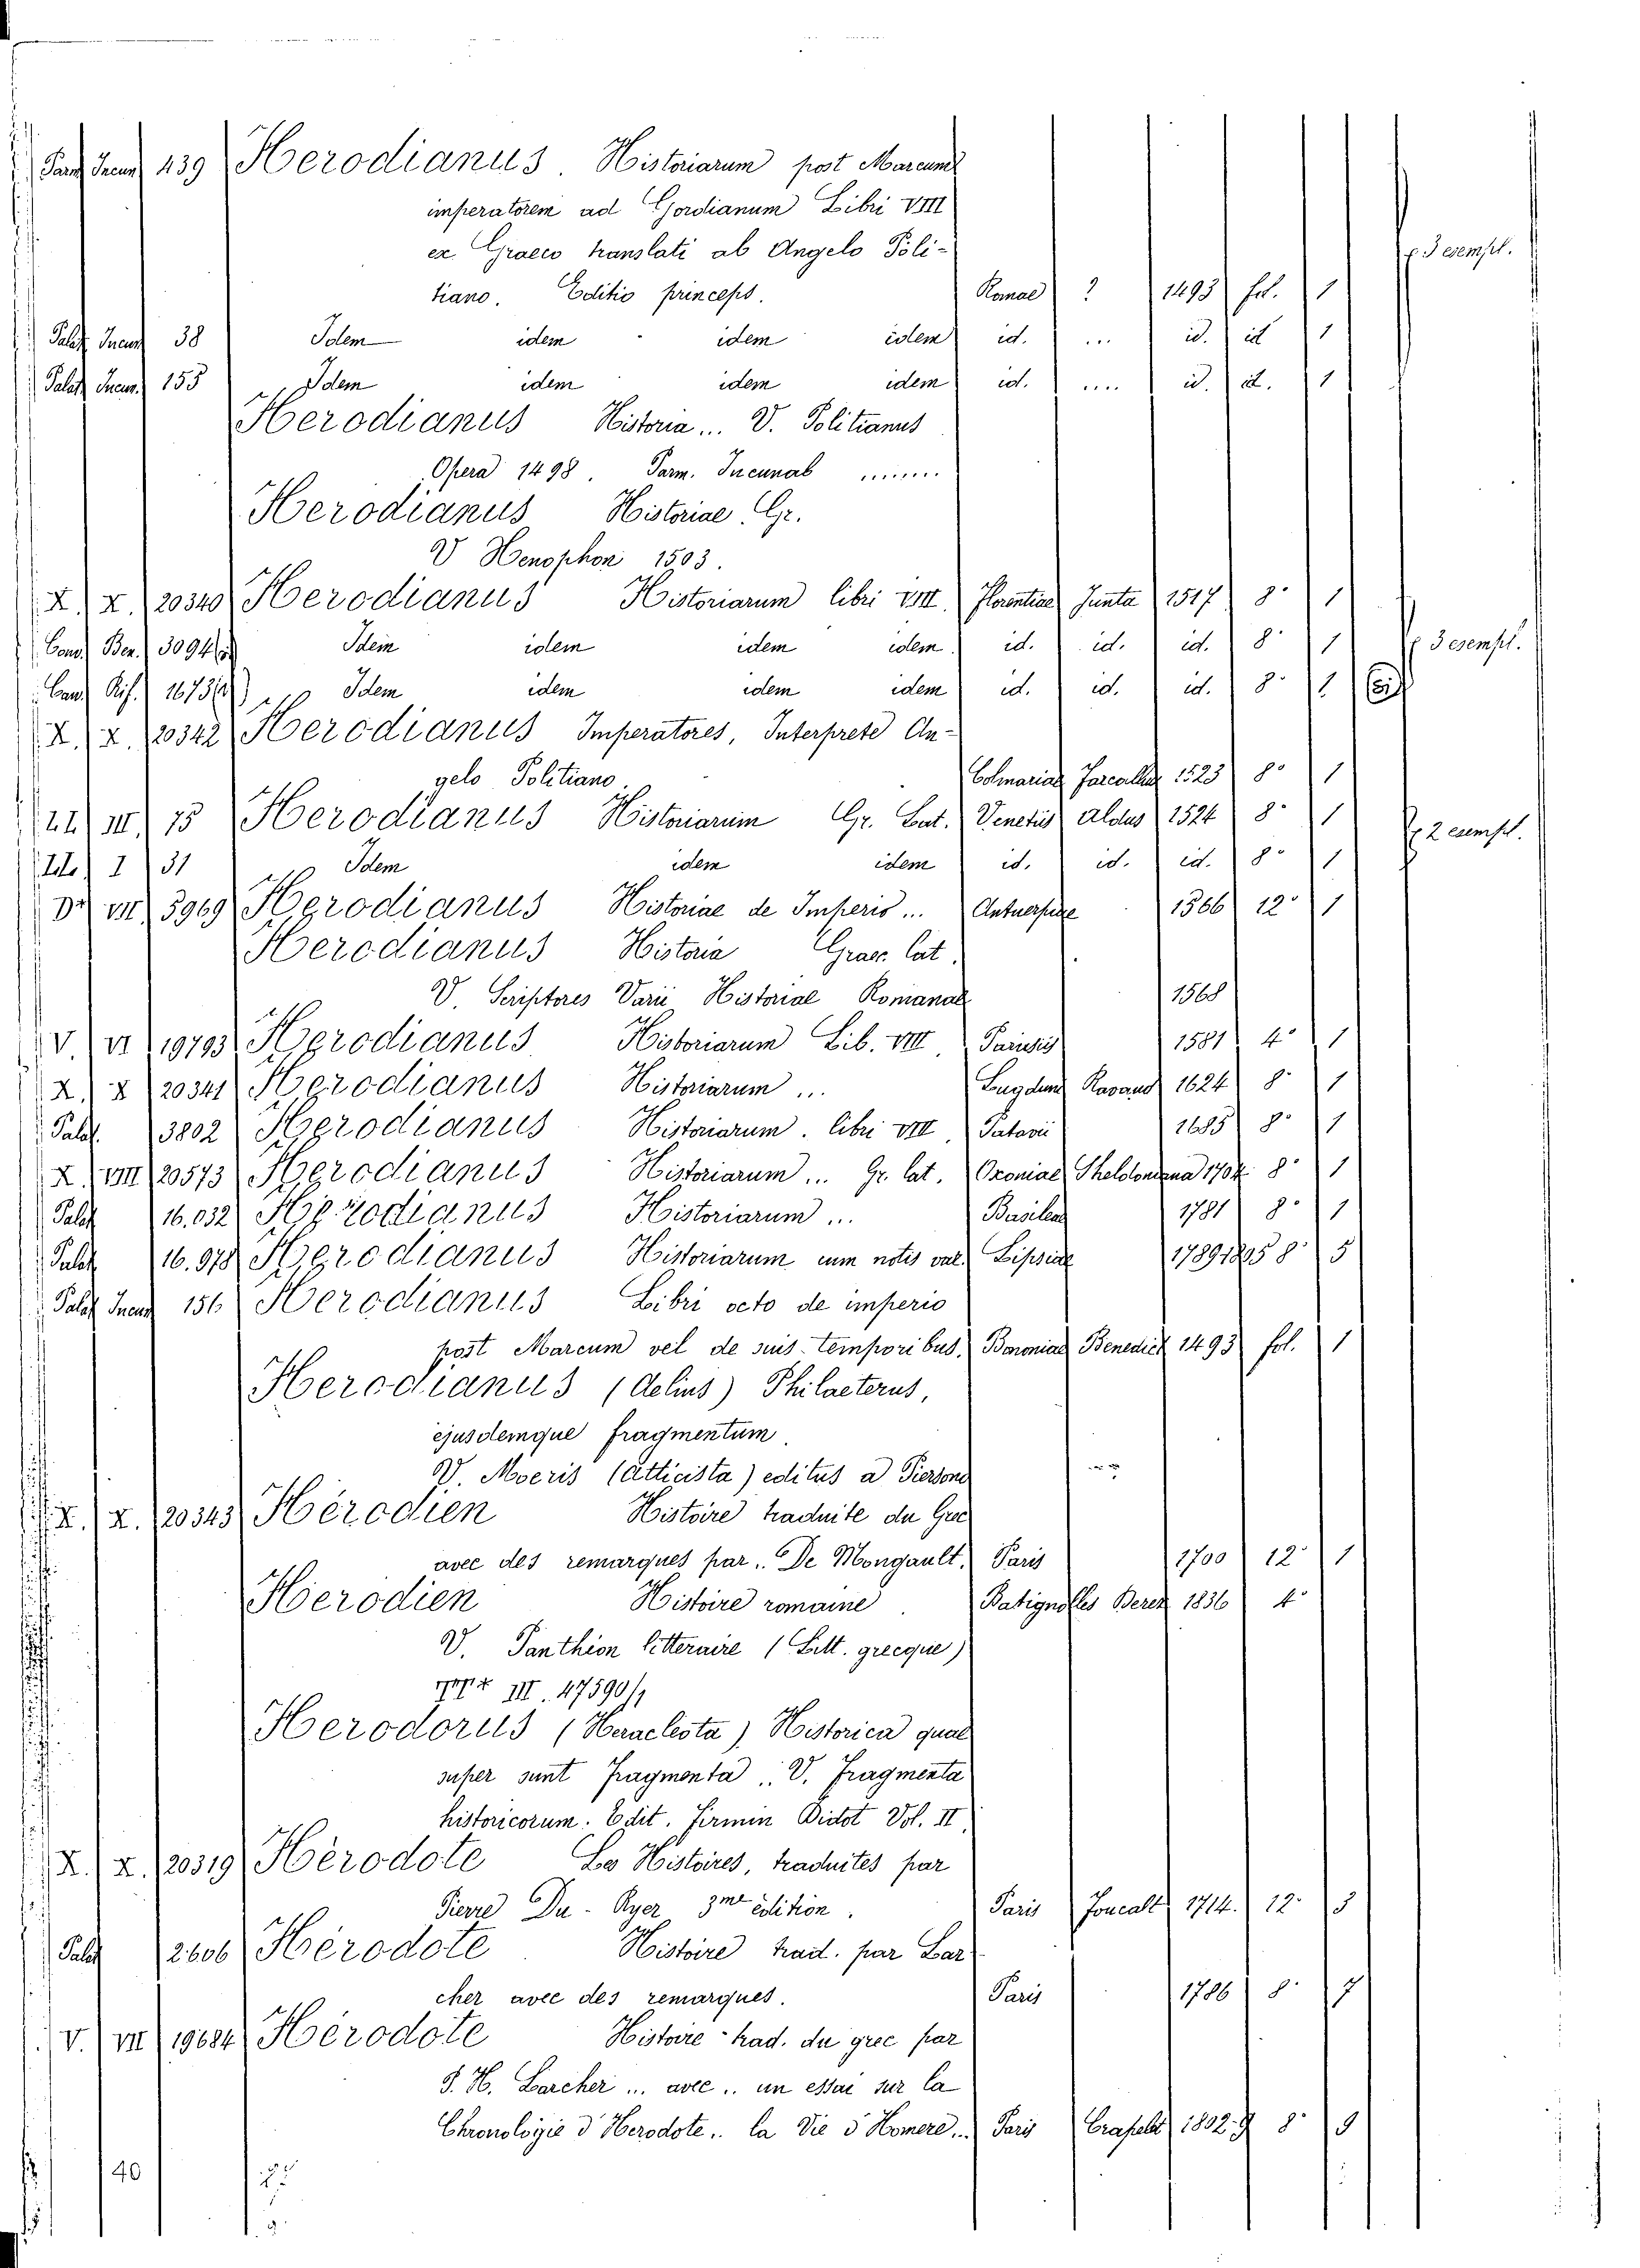 Parm Incun 439 Herodianus. Historiarum post Marcum
imperatorem ad Gordianum Libri VIII
ex Graeco translati ab Angelo Poli-
tiano. Editio princeps. Romae ? 1493 fol. 1 3 esempl.
Palat Incun 38 Idem idem idem idem id. ... id. id 1
Palat Incun. 155 Idem idem idem idem id. .... id. id. 1
Herodianus Historia ... V. Politianus
Opera 1498. Parm. Incunab .......
Herodianus Historiae Gr.
V Henophon 1503.
X. X. 20340 Herodianus Historiarum libri VIII. Florentiae Junta 1517 8° 1
Cond. Ben. 3094 Idem idem idem idem id. id. id. 8° 1 3 esempl.
Cand Rif. 1673 Idem idem idem idem id. id. id. 8° 1
X. X. 20342 Herodianus Imperatores, Interprete An-
gelo Politiano Colmariae 1523 8° 1
LL III 15 Herodianus Historiarum Gr. Lat. Venetiis Aldus 1524 8° 1 2 esempl.
I 31 Idem idem idem id. id. id. 8° 1
VII 3969 Herodianus Historiae de Imperio ... Antuerpiae 1566 12° 1
Herodianus Historia Graec. lat.
V. Scriptores Varii Historiae Romanae 1568
V. VI 19793 Herodianus Historiarum Lib. VIII Parisiis 1581 4° 1
X. X 20341 Herodianus Historiarum ... Lugduni Ravaud 1624 8° 1
Palat. 3802 Herodianus Historiarum. libri VIII Patavii 1685 8° 1
X. VIII 20573 Herodianus Historiarum ... Gr. lat. Oxoniae Sheldoniana 1704 8° 1
Palat 16.032 Herodianus Historiarum ... Basileae 1781 8° 1
Palat 16.978 Herodianus Historiarum cum notis var. Lipsiae 1789 1805 8° 5
Palat Incun 156 Herodianus Libri octo de imperio
post Marcum vel de suis temporibus. Bononiae Benedict 1493 fol. 1
Herodianus (Aelius) Philaeterus,
ejusdemque fragmentum
V. Moeris (Atticista) editus a Piersono
X. X. 20343 Hérodien Histoire traduite du Grec
avec des remarques par.. De Mongault, Paris 1700 12° 1
Hérodien Histoire romaine Batignolles Berez 1836 4°
V. Panthion litteraire (Litt. grecque)
III. 47590/1
Herodorus (Heracleota) Historica quae
super sunt Fragmenta.. V. Fragmenta
historicorum. Edit. Firmin Didot Vol. II
X. X. 20319 Hérodote Les Histoires, traduites par
Pierre Du-Ryer 3me édition. Paris Foucalt 1714. 12° 3
Palat 2606 Hérodote Histoire trad. par Lar
cher avec des remarques. Paris 1786 8° 7
V. VII 19684 Hérodote Histoire trad. du grec par
P. H. Larcher ... avec .. un essai sur la
Chronologie d'Herodote.. la Vie d'Homere... Paris Crapelet 1802 8° 9
40